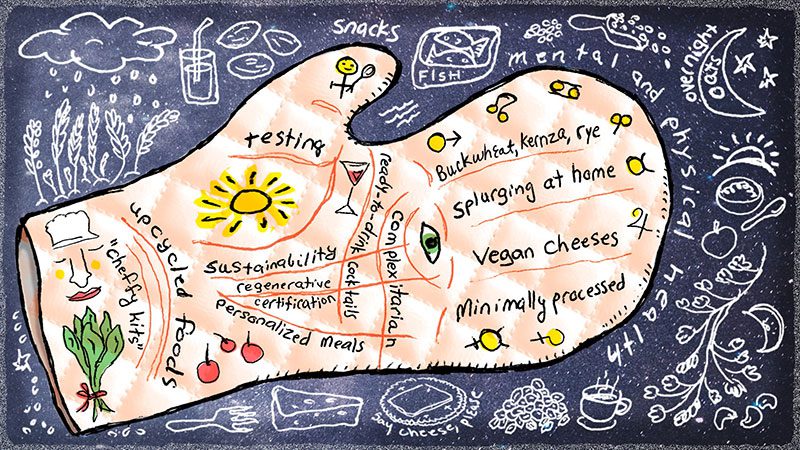 snacks
FISH
mental
and
physical
health
overnight
oats
testing
upcycled foods
"cheffy kits"
sustainability
regenerative
certification
personalized meals
ready-to-drink cocktails
complexitarian
Buckwheat, Kernza, rye
splurging at home
vegan cheeses
Minimally processed
say cheese, please